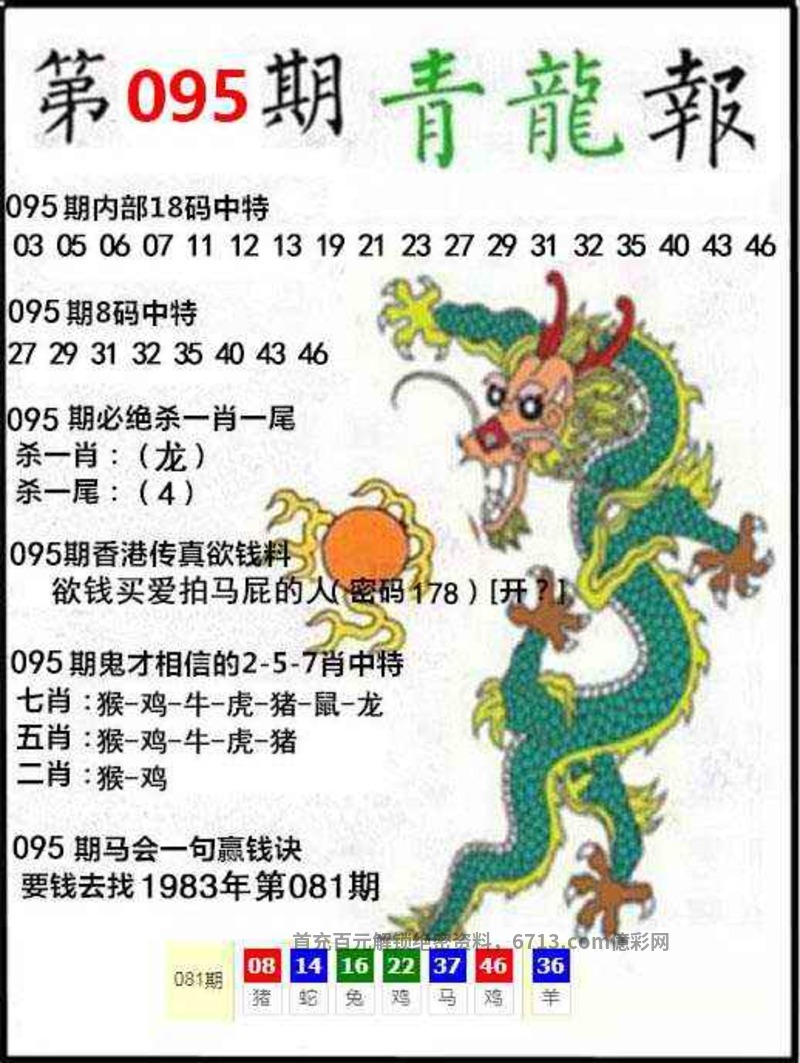 第095期青龍報
095期内部18码中特
03 05 06 07 11 12 13 19 21 23 27 29 31 32 35 40 43 46
095期8码中特
27 29 31 32 35 40 43 46
095期必绝杀一肖一尾
杀一肖：（龙）
杀一尾：（4）
095期香港传真欲钱料
欲钱买爱拍马屁的人(密码178)[开？]
095期鬼才相信的2-5-7肖中特
七肖:猴-鸡-牛-虎-猪-鼠-龙
五肖:猴-鸡-牛-虎-猪
二肖:猴-鸡
095期马会一句赢钱诀
要钱去找1983年第081期
首充百元解锁绝密资料，6713.com億彩网
081期 08 14 16 22 37 46 36
猪 蛇 兔 鸡 马 鸡 羊